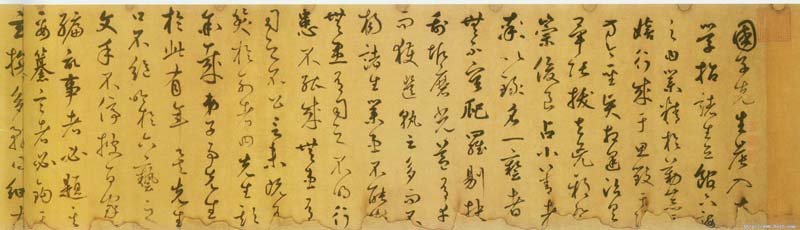 國子先生晨入太
學招諸生立館下誨
之曰業精於勤荒于
嬉行成于思毀于
方今聖賢相逢治具
畢張拔去兇邪登
崇俊良占小善者
率以錄名一藝者
無不庸爬羅剔抉
刮垢磨光蓋有幸
而獲選孰云多而不
揚諸生業患不能精
無患有司之不明行
患不能成無患有
司之不公言未既有
笑於列者曰先生欺
余哉弟子事先生
於此有年矣先生
口不絕吟於六藝之
文手不停披百家
編記事者必題其
要纂言者必鉤其
玄貪多務得細大